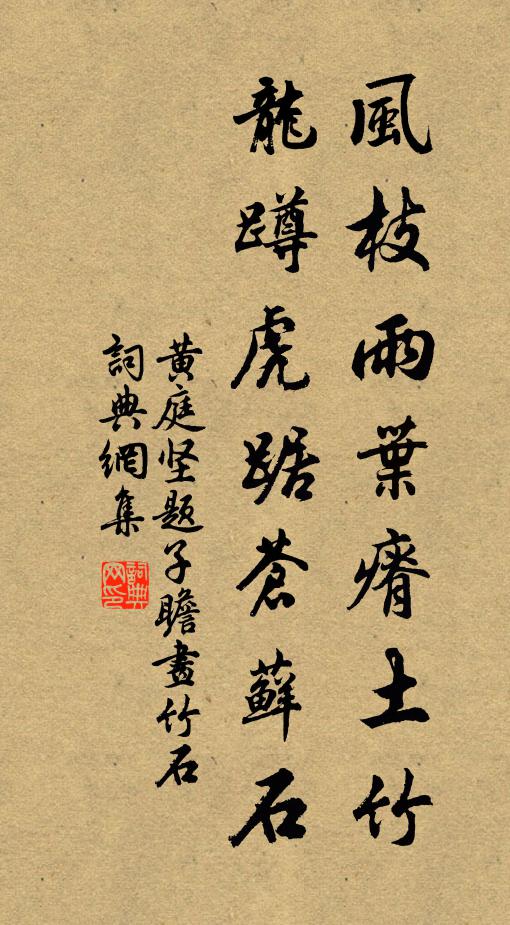 風枝雨葉瘠土竹
龍蹲虎踞蒼蘚石
黄庭坚题子瞻畫竹石
詞典網集
詞典网印